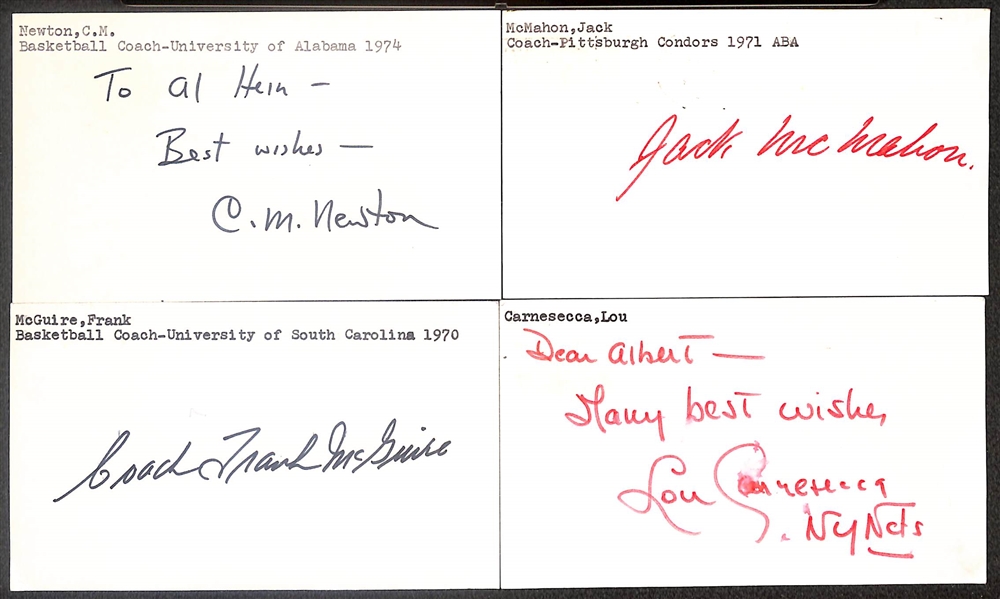 Newton,C.M.
Basketball Coach-University of Alabama 1974
To Al Hein -
Best wishes -
C.M. Newton
McMahon,Jack
Coach-Pittsburgh Condors 1971 ABA
Jack McMahon.
McGuire,Frank
Basketball Coach-University of South Carolina 1970
Coach Frank McGuire
Carnesecca,Lou
Dear Albert -
Many best wishes
Lou Carnesecca
. NY Nets